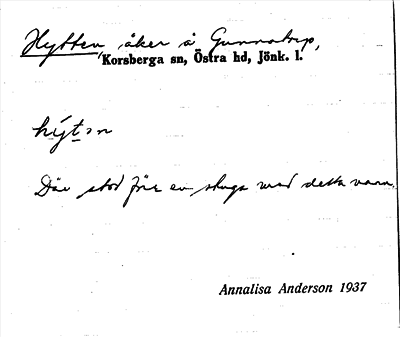 Hytten, åker å Gunnatorp,
Korsberga sn, Östra hd, Jönk. l.
hýtən
Där stod förr en stuga med detta namn.
Annalisa Anderson 1937